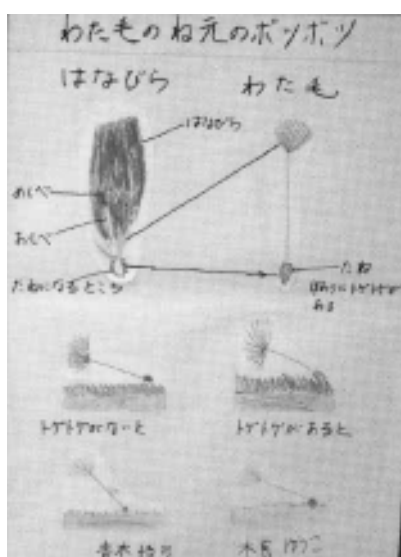 わた毛のね元のボツボツ
はなびら わた毛
はなびら
めしべ
おしべ
たねになるところ
たね
まわりにトゲトゲが
ある
トゲトゲがないと トゲトゲがあると